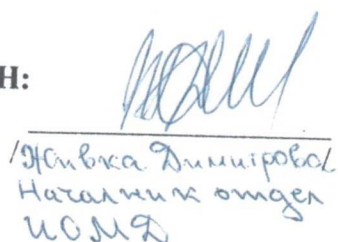 Н:
/Живка Димитрова/
Началник отдел
ИОМД